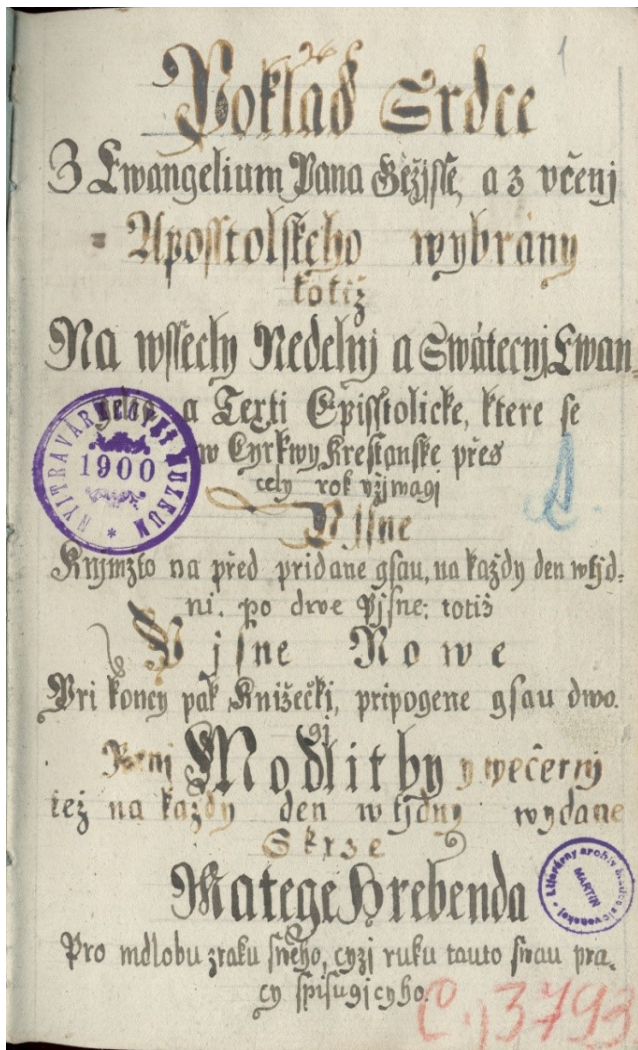 1
Poklad Srdce
Z Ewangelium Pana Gežjsse, a z včenj
= Aposstolskeho wybrány
totiž
Na wssecky Nedelnj a Swátecnj Ewan=
gelia a Texti Episstolicke, ktere se
w Cyrkwy Krestanske přes
cely rok vžjwagj
Pjsne
Knjmžto na před pridane gsau, na každy den wtýd=
ni. po dwe Pjsne; totiž
Pjsne Nowe
Pri koncy pak Knižečki, pripogene gsau dwo.
gj
Rannj Modlitby y wečernj
též na každy den w týdny wydane
Skrze
Matege Hrebenda
Pro mdlobu zraku sweho, cyzj ruku tauto swau pra.
cy spisugjcyho.
NYITRAVÁRMEGYEI MUZEUM
1900
Literárny archív Matice slovenskej
MARTIN
C. 13793